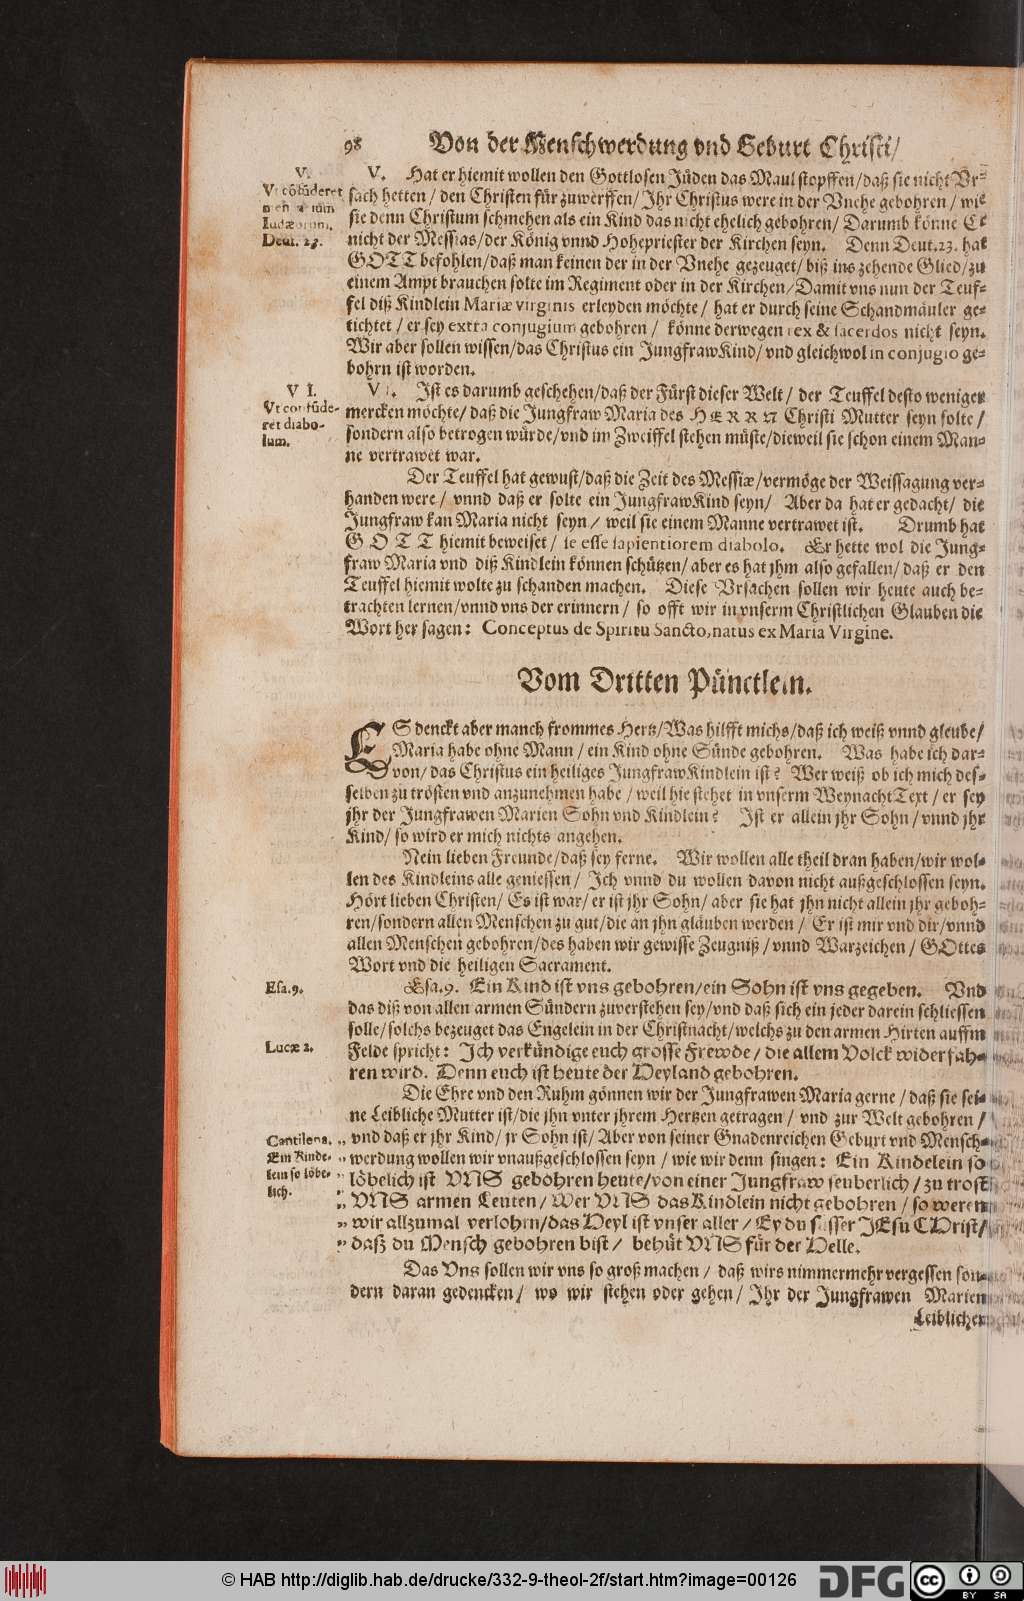 98 Von der Menschwerdung vnd Geburt Christi/
V.
Vt cōfūderet
Iudæorum.
Deut. 23.
V. Hat er hiemit wollen den Gottlosen Jüden das Maul stopffen/daß sie nicht Vr-
sach hetten / den Christen für zuwerffen/ Jhr Christus were in der Vnehe gebohren / wie
sie denn Christum schmehen als ein Kind das nicht ehelich gebohren/ Darumb könne Er
nicht der Messias/der König vnnd Hohepriester der Kirchen seyn. Denn Deut.23. hat
GOTT befohlen/daß man keinen der in der Vnehe gezeuget/ biß ins zehende Glied/zu
einem Ampt brauchen solte im Regiment oder in der Kirchen/Damit vns nun der Teuf-
fel diß Kindlein Mariæ virginis erleyden möchte / hat er durch seine Schandmäuler ge-
tichtet / er sey extra conjugium gebohren / könne derwegen rex & sacerdos nicht seyn.
Wir aber sollen wissen/das Christus ein JungfrawKind/ vnd gleichwol in conjugio ge-
bohrn ist worden.
V I.
Vt confūde-
ret diabo-
lum.
VI. Ist es darumb geschehen/daß der Fürst dieser Welt/ der Teuffel desto weniger
mercken möchte/ daß die Jungfraw Maria des HERRN Christi Mutter seyn solte /
sondern also betrogen würde/vnd im Zweiffel stehen müste/dieweil sie schon einem Man-
ne vertrawet war.
Der Teuffel hat gewust/daß die Zeit des Messiæ/vermöge der Weissagung ver-
handen were / vnnd daß er solte ein JungfrawKind seyn/ Aber da hat er gedacht/ die
Jungfraw kan Maria nicht seyn / weil sie einem Manne vertrawet ist. Drumb hat
GOTT hiemit beweiset / se esse sapientiorem diabolo. Er hette wol die Jung-
fraw Maria vnd diß Kindlein können schützen/ aber es hat jhm also gefallen/ daß er den
Teuffel hiemit wolte zu schanden machen. Diese Vrsachen sollen wir heute auch be-
trachten lernen/vnnd vns der erinnern / so offt wir in vnserm Christlichen Glauben die
Wort her sagen: Conceptus de Spiritu Sancto, natus ex Maria Virgine.
Vom Dritten Pünctlein.
ES denckt aber manch frommes Hertz/Was hilfft michs/daß ich weiß vnnd gleube/
Maria habe ohne Mann / ein Kind ohne Sünde gebohren. Was habe ich dar-
von/ das Christus ein heiliges JungfrawKindlein ist? Wer weiß ob ich mich des-
selben zu trösten vnd anzunehmen habe / weil hie stehet in vnserm WeynachtText / er sey
jhr der Jungfrawen Marien Sohn vnd Kindlein? Ist er allein jhr Sohn / vnnd jhr
Kind/ so wird er mich nichts angehen.
Nein lieben Freunde/daß sey ferne. Wir wollen alle theil dran haben/wir wol-
len des Kindleins alle geniessen / Ich vnnd du wollen davon nicht außgeschlossen seyn.
Hört lieben Christen/ Es ist war/ er ist jhr Sohn/ aber sie hat jhn nicht allein jhr geboh-
ren/sondern allen Menschen zu gut/die an jhn gläuben werden / Er ist mir vnd dir/vnnd
allen Menschen gebohren/des haben wir gewisse Zeugniß / vnnd Warzeichen / GOttes
Wort vnd die heiligen Sacrament.
Esa.9.
Esa.9. Ein Kind ist vns gebohren/ein Sohn ist vns gegeben. Vnd
das diß von allen armen Sündern zuverstehen sey/vnd daß sich ein jeder darein schliessen
solle/solchs bezeuget das Engelein in der Christnacht/welchs zu den armen Hirten auffm
Lucæ 2.
Felde spricht: Ich verkündige euch grosse Frewde / die allem Volck widerfah-
ren wird. Denn euch ist heute der Heyland gebohren.
Die Ehre vnd den Ruhm gönnen wir der Jungfrawen Maria gerne / daß sie sei-
ne Leibliche Mutter ist/die jhn vnter jhrem Hertzen getragen / vnd zur Welt gebohren /
Cantilena.
Ein Kinde-
lein so löbe-
lich.
„ vnd daß er jhr Kind/ jr Sohn ist/ Aber von seiner Gnadenreichen Geburt vnd Mensch-
„ werdung wollen wir vnaußgeschlossen seyn / wie wir denn singen: Ein Kindelein so
„ löbelich ist VNS gebohren heute/von einer Jungfraw seuberlich / zu trost
„ VNS armen Leuten / Wer VNS das Kindlein nicht gebohren / so weren
„ wir allzumal verlohrn/das Heyl ist vnser aller / Ey du süsser JEsu CHrist/
„ daß du Mensch gebohren bist / behüt VNS für der Helle.
Das Vns sollen wir vns so groß machen / daß wirs nimmermehr vergessen son-
dern daran gedencken / wo wir stehen oder gehen / Jhr der Jungfrawen Marien
Leiblicher
© HAB http://diglib.hab.de/drucke/332-9-theol-2f/start.htm?image=00126
DFG
cc BY SA